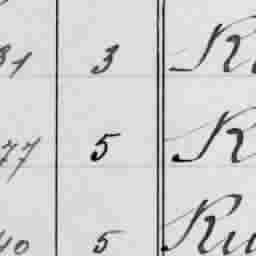 31 3 Ku
77 5 K
40 5 Ku